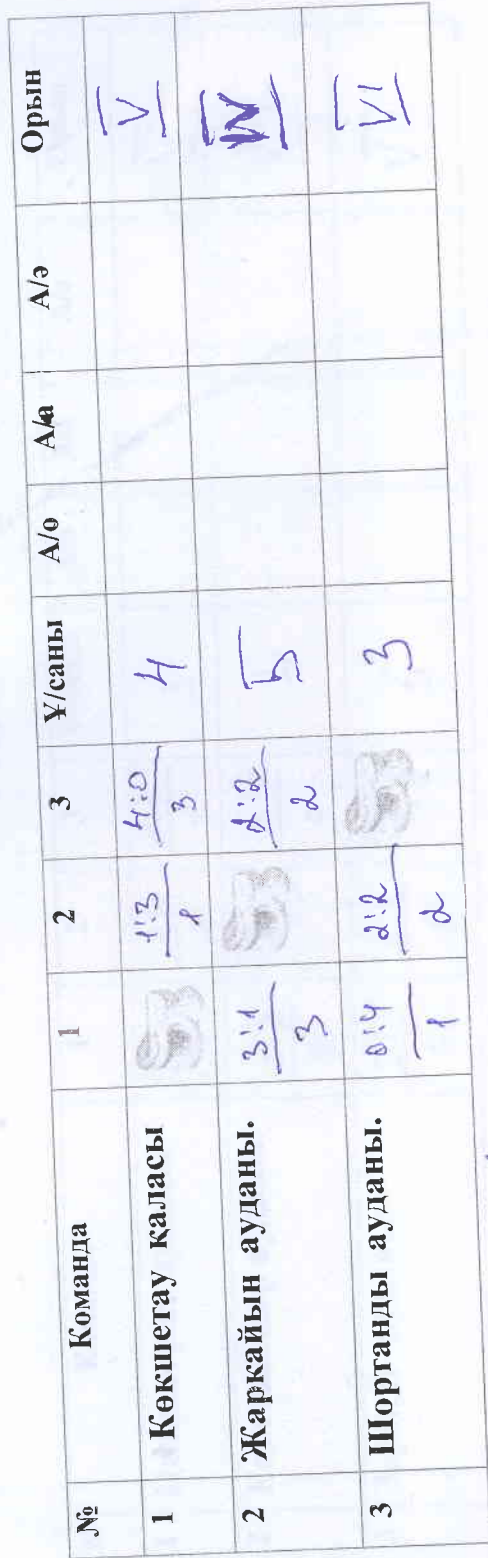 № Команда 1 2 3 Ұ/саны А/о А/а А/ә Орын
1 Көкшетау қаласы 1:3 4:0 4 V
1 3
2 Жаркайын ауданы. 3:1 2:2 5 IV
3 2
3 Шортанды ауданы. 0:4 2:2 3 VI
1 2